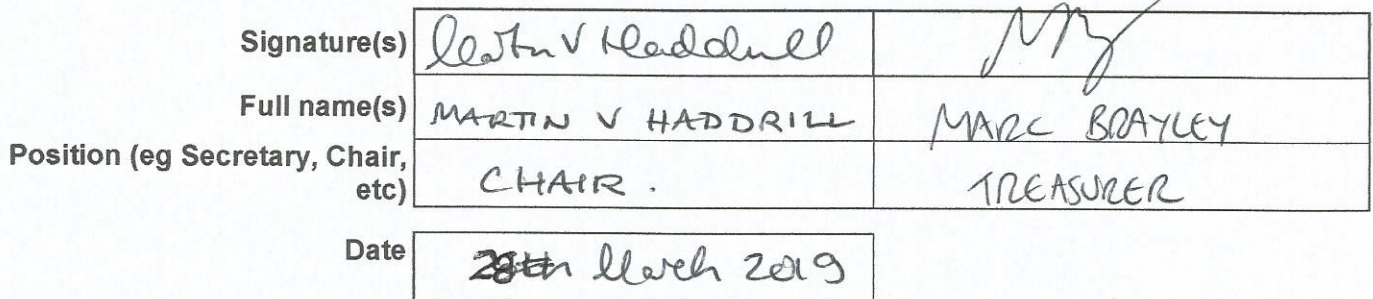 Signature(s) Martin V Haddrill
Full name(s) MARTIN V HADDRILL MARC BRAYLEY
Position (eg Secretary, Chair, etc) CHAIR. TREASURER
Date 28th March 2019